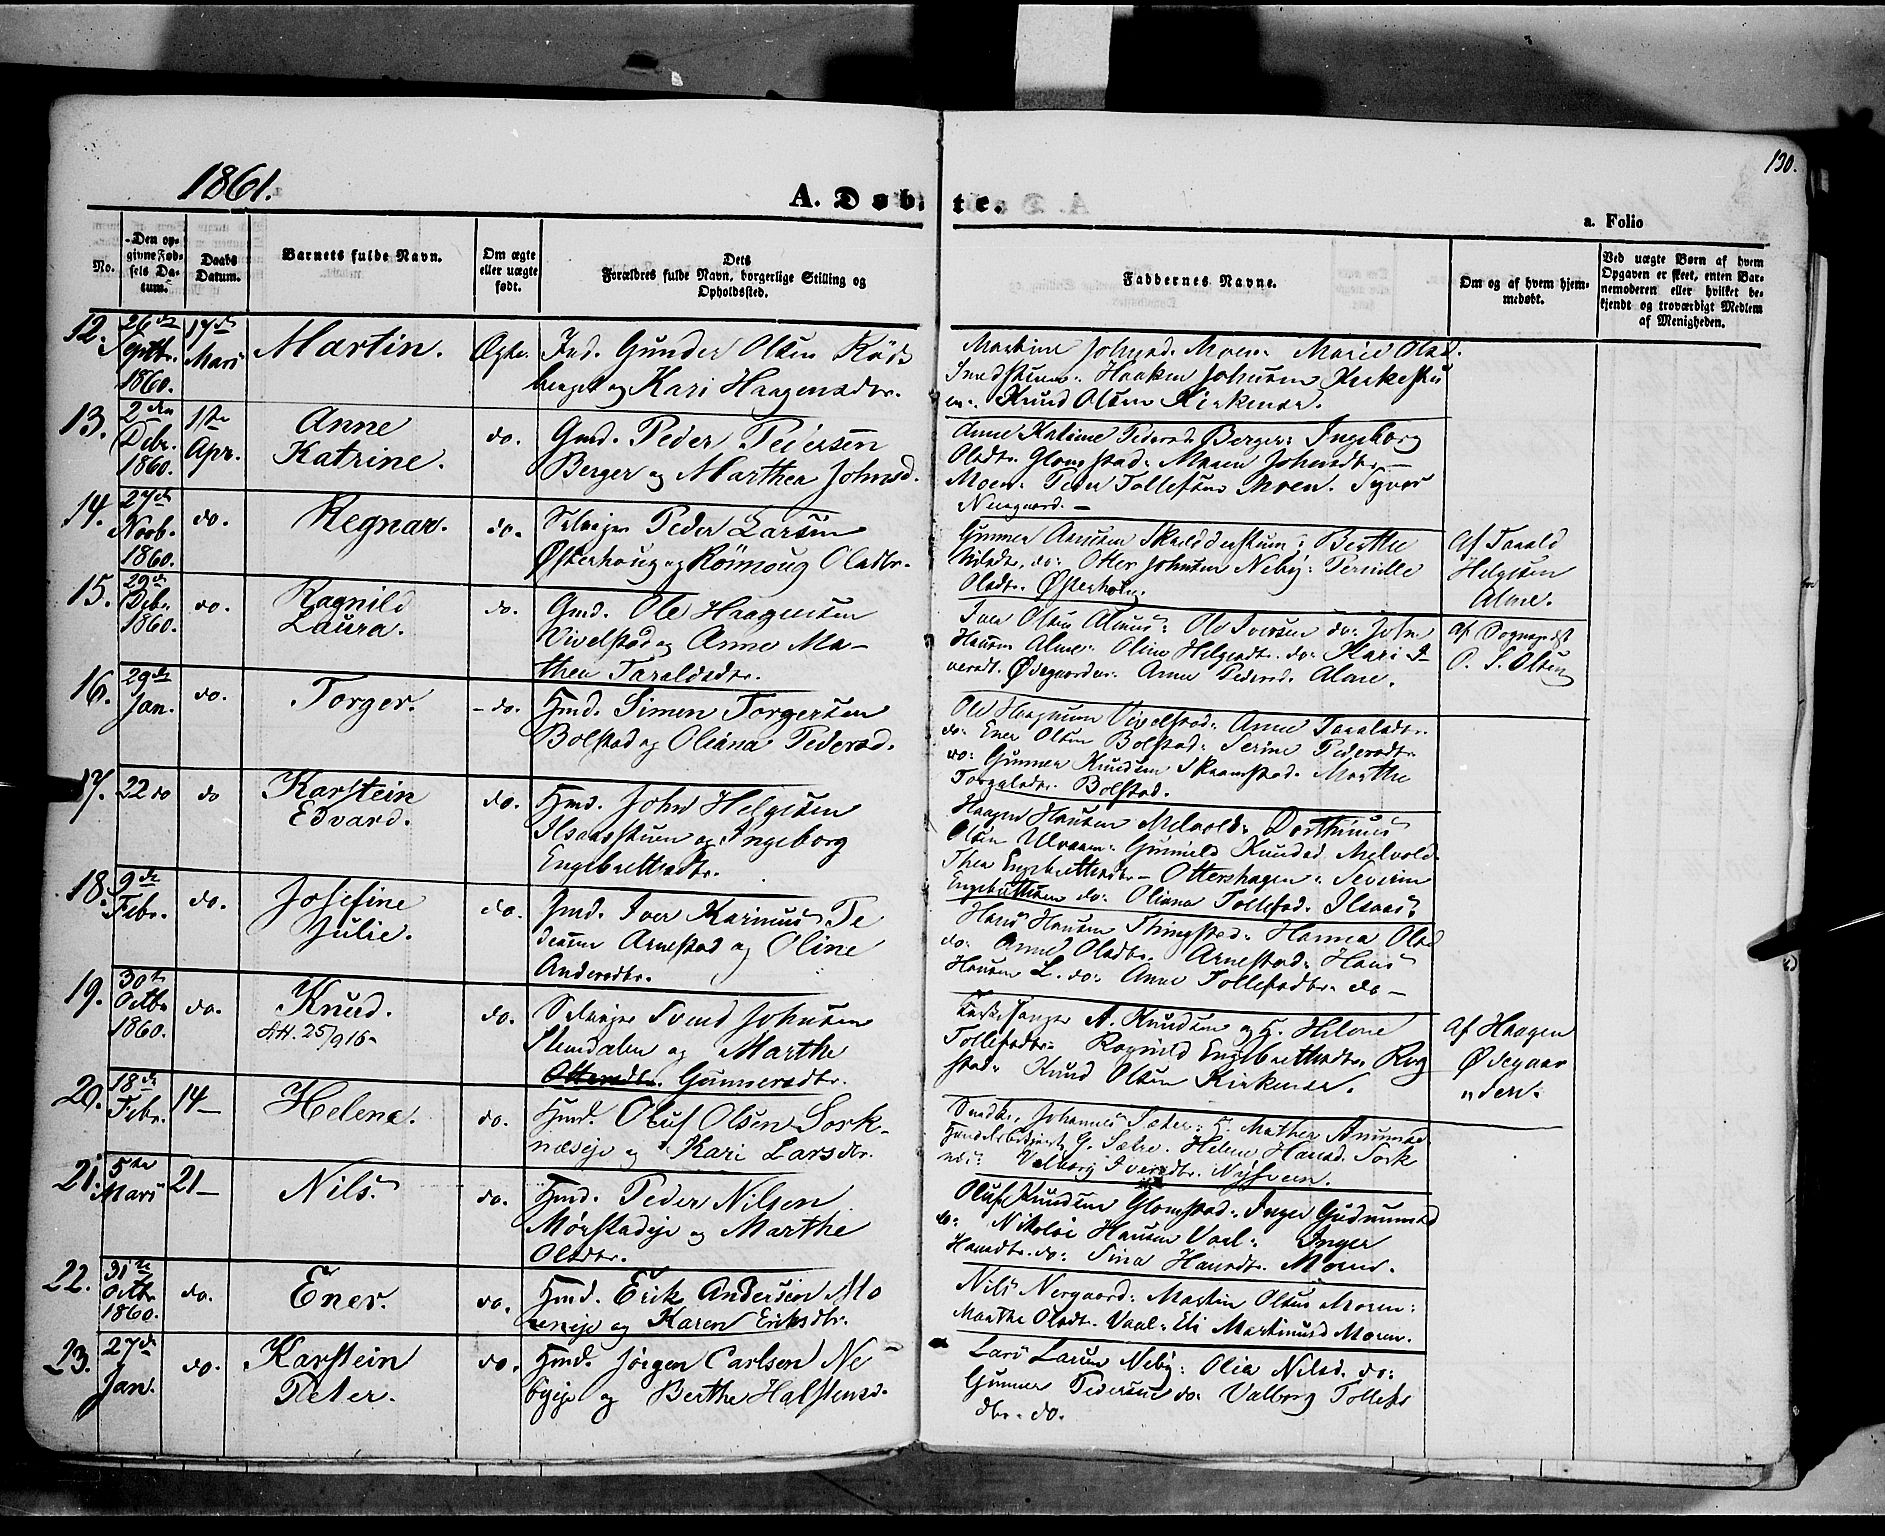 130.
1861.
A. Døbte.
a. Folio
No.
Den opgivne Fødsels Datum.
Daabs Datum.
Barnets fulde Navn.
Om ægte eller uægte født.
Dets Forældres fulde Navn, borgerlige Stilling og Opholdssted.
Faddernes Navne.
Om og af hvem hjemmedøbt.
Ved uægte Børn af hvem Opgaven er skeet, enten Barnemoderen eller hvilket bekjendt og troværdigt Medlem af Menigheden.
12. 26de Septbr. 1860. 17de Mars Martin. Ægte.
Ind. Gunder Olsen Röds
berget og Kari Haagensdtr.
Martine Johnsd. Moen. Marie Olsd.
Haaken Johnsen Kirkestu
en. Knud Olsen Kirkenær.
13. 2den Debr. 1860. 1ste Apr. Anne
Katrine. do.
Gmd. Peder Pedersen
Berger og Marthea Johnsd.
Anne Katrine Pedersd. Berger: Ingeborg
Olsdtr. Glomstad: Maren Johnsdtr.
Moen: Peder Tollefsen Moen.
14. 27de Novb. 1860. do. Regnar. do.
Selveier Peder Larsen
Østerhaug og Rönnoug Olsdtr.
Gunner Berthe
do: Otter Johnsen Neby: Pernille
Olsdtr.
Af Tarald
Helgesen
Alme.
15. 29de Debr. 1860. do. Ragnild
Laura. do.
Gmd. Ole Haagensen
Vivelstad og Anne Ma-
thea Taraldsdtr.
Iver Olsen Alme: Ole Iversen do: John
Hansen Alme: Oline Helgesdtr. do: Kari I-
versdt. Ødegaarden: Anne Pedersd. Alme.
Af Sognepræst
O. S. Olsen
16. 29de Jan. do. Torger. - do.
Hmd. Simen Torgersen
Bolstad og Oliana Pedersd.
Ole Haagensen Vivelstad: Anne Taraldsdtr.
do: Ener Olsen Bolstad: Serine Pedersdtr.
do: Gunner Knudsen Skramstad: Marthe
Torgalsdtr. Bolstad.
17. 22 do do Karstein
Edvard. do.
Hmd. John Helgesen
Ilsaasstuen og Ingeborg
Engebrettsdtr.
Haagen Hansen Melvold: Dorthinus
Olsen Ulvaaen: Gunild Knudsd. Melvold:
Thea Engebrettsdtr- Ottershagen: Severin
Engebrettsen do: Oliana Tollefsd. Ilsaas:
18. 9de Febr. do. Josefine
Julie. do.
Gmd. Iver Karinus Pe
dersen Arnestad og Oline
Andersdtr.
Hans Hansen Thingstad: Hanna Olsd
do: Anne Olsdtr. Arnestad: Hans
Hansen L. do: Anne Tollefsdtr. do-
19. 30te Octbr 1860. do. Knud. do.
25/9 16
Selveier Svend Johnsen
Stemdalen og Marthe
Ottersdtr. Gunnersdtr.
Kirkesanger A. Knudsen og H. Helene
Tollefsdtr: Ragnild Engebrettsdtr. Rog
stad: Knud Olsen Kirkenær.
Af Haagen
Ødegaar
"den.
20. 18de Febr. 14- Helene. do.
Hmd. Oluf Olsen Sork-
næseje og Kari Larsdtr.
Johannes Sæter: H. Mathea
G. Sætre. Helene Hansd. Sork
næs: Valborg Iversdtr. Nyhveen.
21. 5te Mars 21- Nils. do.
Hmd. Peder Nilsen
Mørstadeje og Marthe
Olsdtr.
Oluf Knudsen Glomstad: Inger Gudmunsd
do: Nikolai Hansen Vaal: Inger
Hansdtr. do: Sina Hansdtr. Moren.
22. 31te Octbr 1860. do. Ener. do.
Hmd. Erik Andersen Mo
reneje og Karen Eriksdtr.
Nils Nergaard: Martin Olsen Moren:
Marthe Olsdt. Vaal: Eli Martinusd Moren.
23. 27de Jan. do. Karstein
Peter. do.
Hmd. Jörgen Carlsen Ne
byeje og Berthe Halstensd.
Lars Larsen Neby: Olia Nilsd. do:
Gunner Pedersen do: Valborg Tollefs
dtr. do.